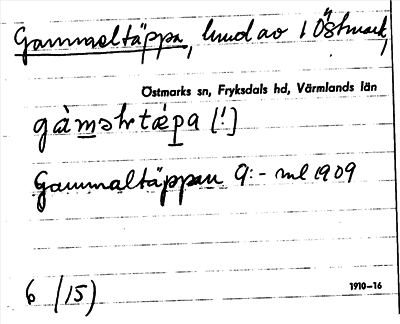 Gammaltäppa, hmd av 1 Östmark,
Östmarks sn, Fryksdals hd, Värmlands län
gàməltæpa [!]
Gammaltäppan 9:- ml 1909
6 (15)
1910-16